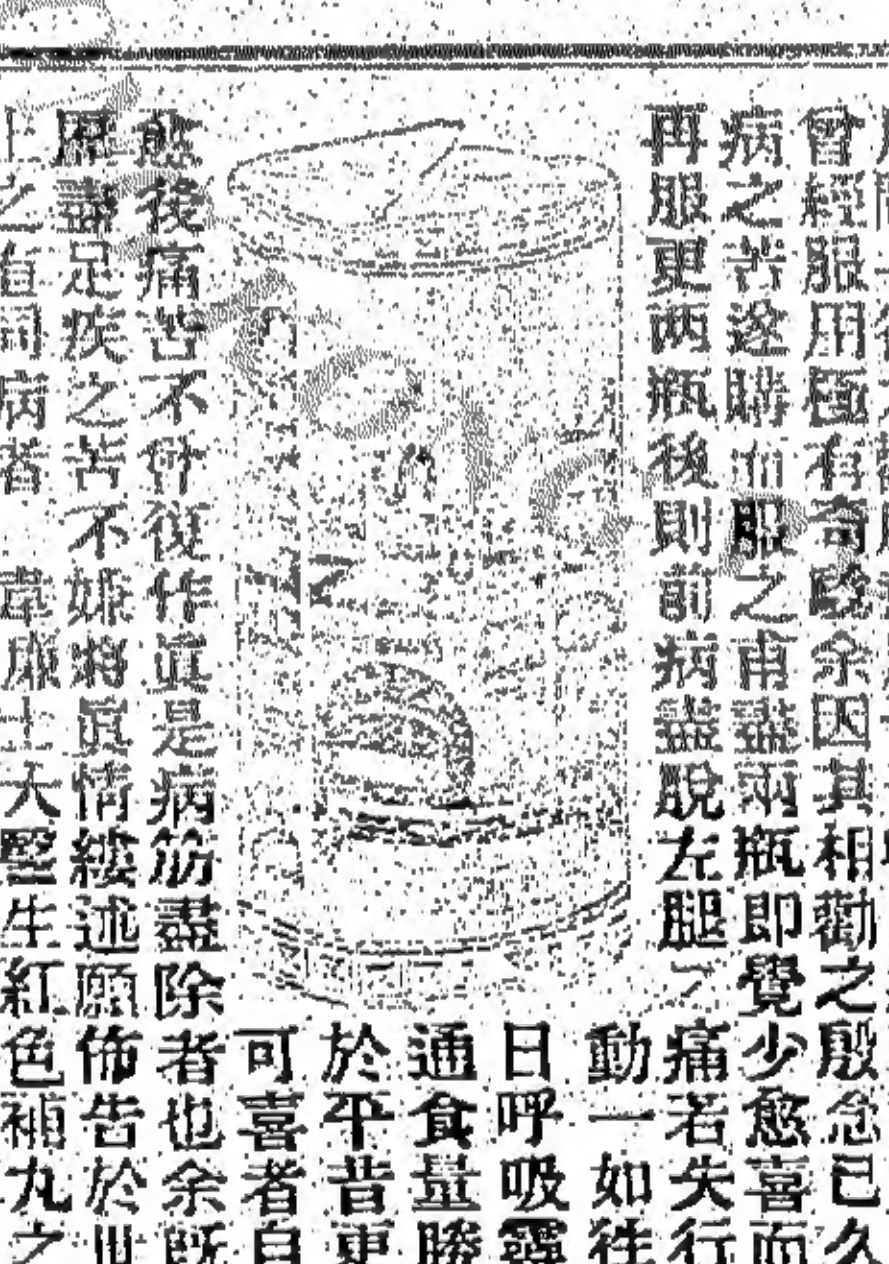 曾經服用極有奇驗余因其相勸之殷念已久
病之苦遂購而服之甫盡兩瓶即覺少愈喜而
再服更两瓶後則前病盡脫左腿之痛若失行
動一如往
日呼吸靈
通食量勝
於平昔更
可喜者自
愈後痛苦不曾復作眞是病筋盡除者也余既
歷盡足疾之苦不嫌將眞情縷述願佈告於世
上之有同病者 韋廉士大醫生紅色補丸之